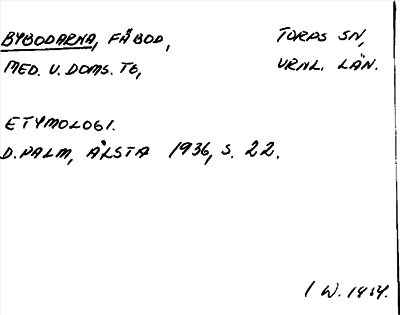 BYBODARNA, FÄBOD, TORPS SN,
MED. V. DOMS. TG, VRNL. LÄN.
ETYMOLOGI.
D. PALM, ÅLSTA 1936, S. 22.
I W. 1954.